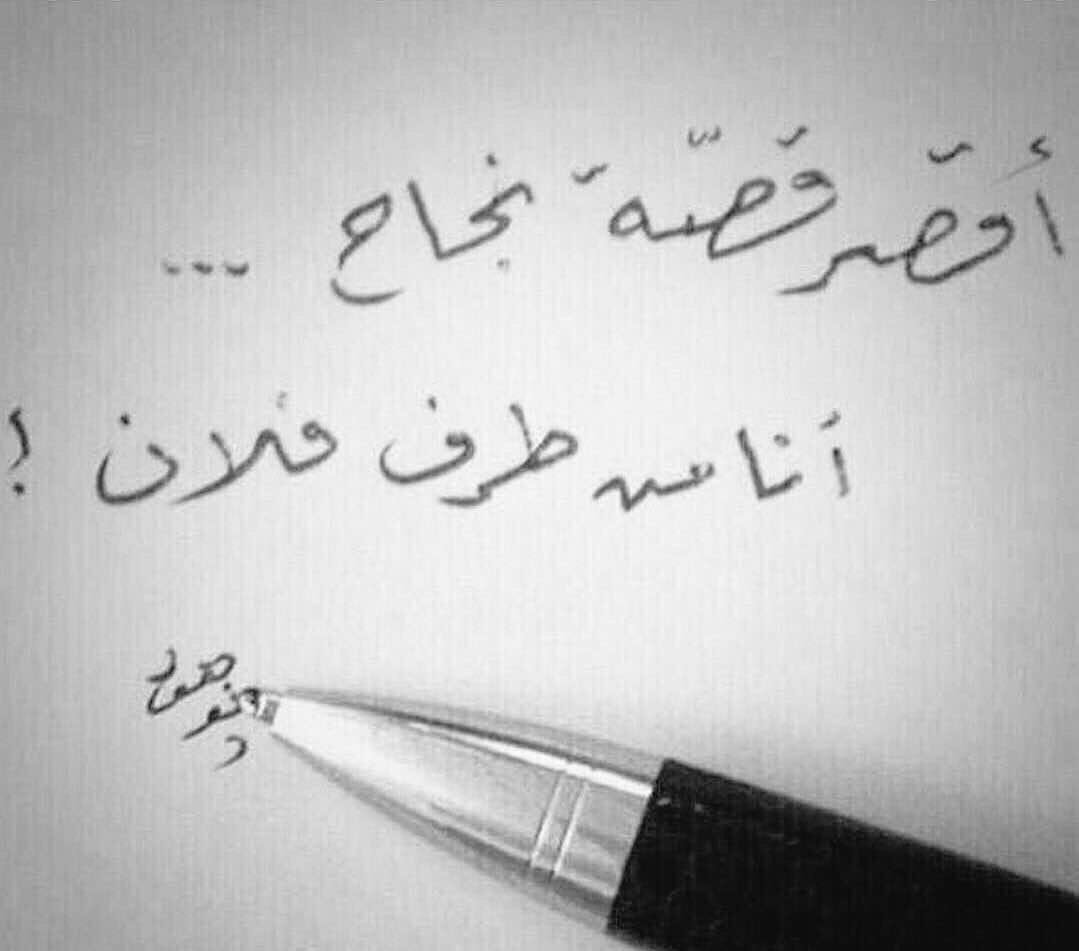 أقصر قصّة نجاح ...
أنا من طرف فلان !